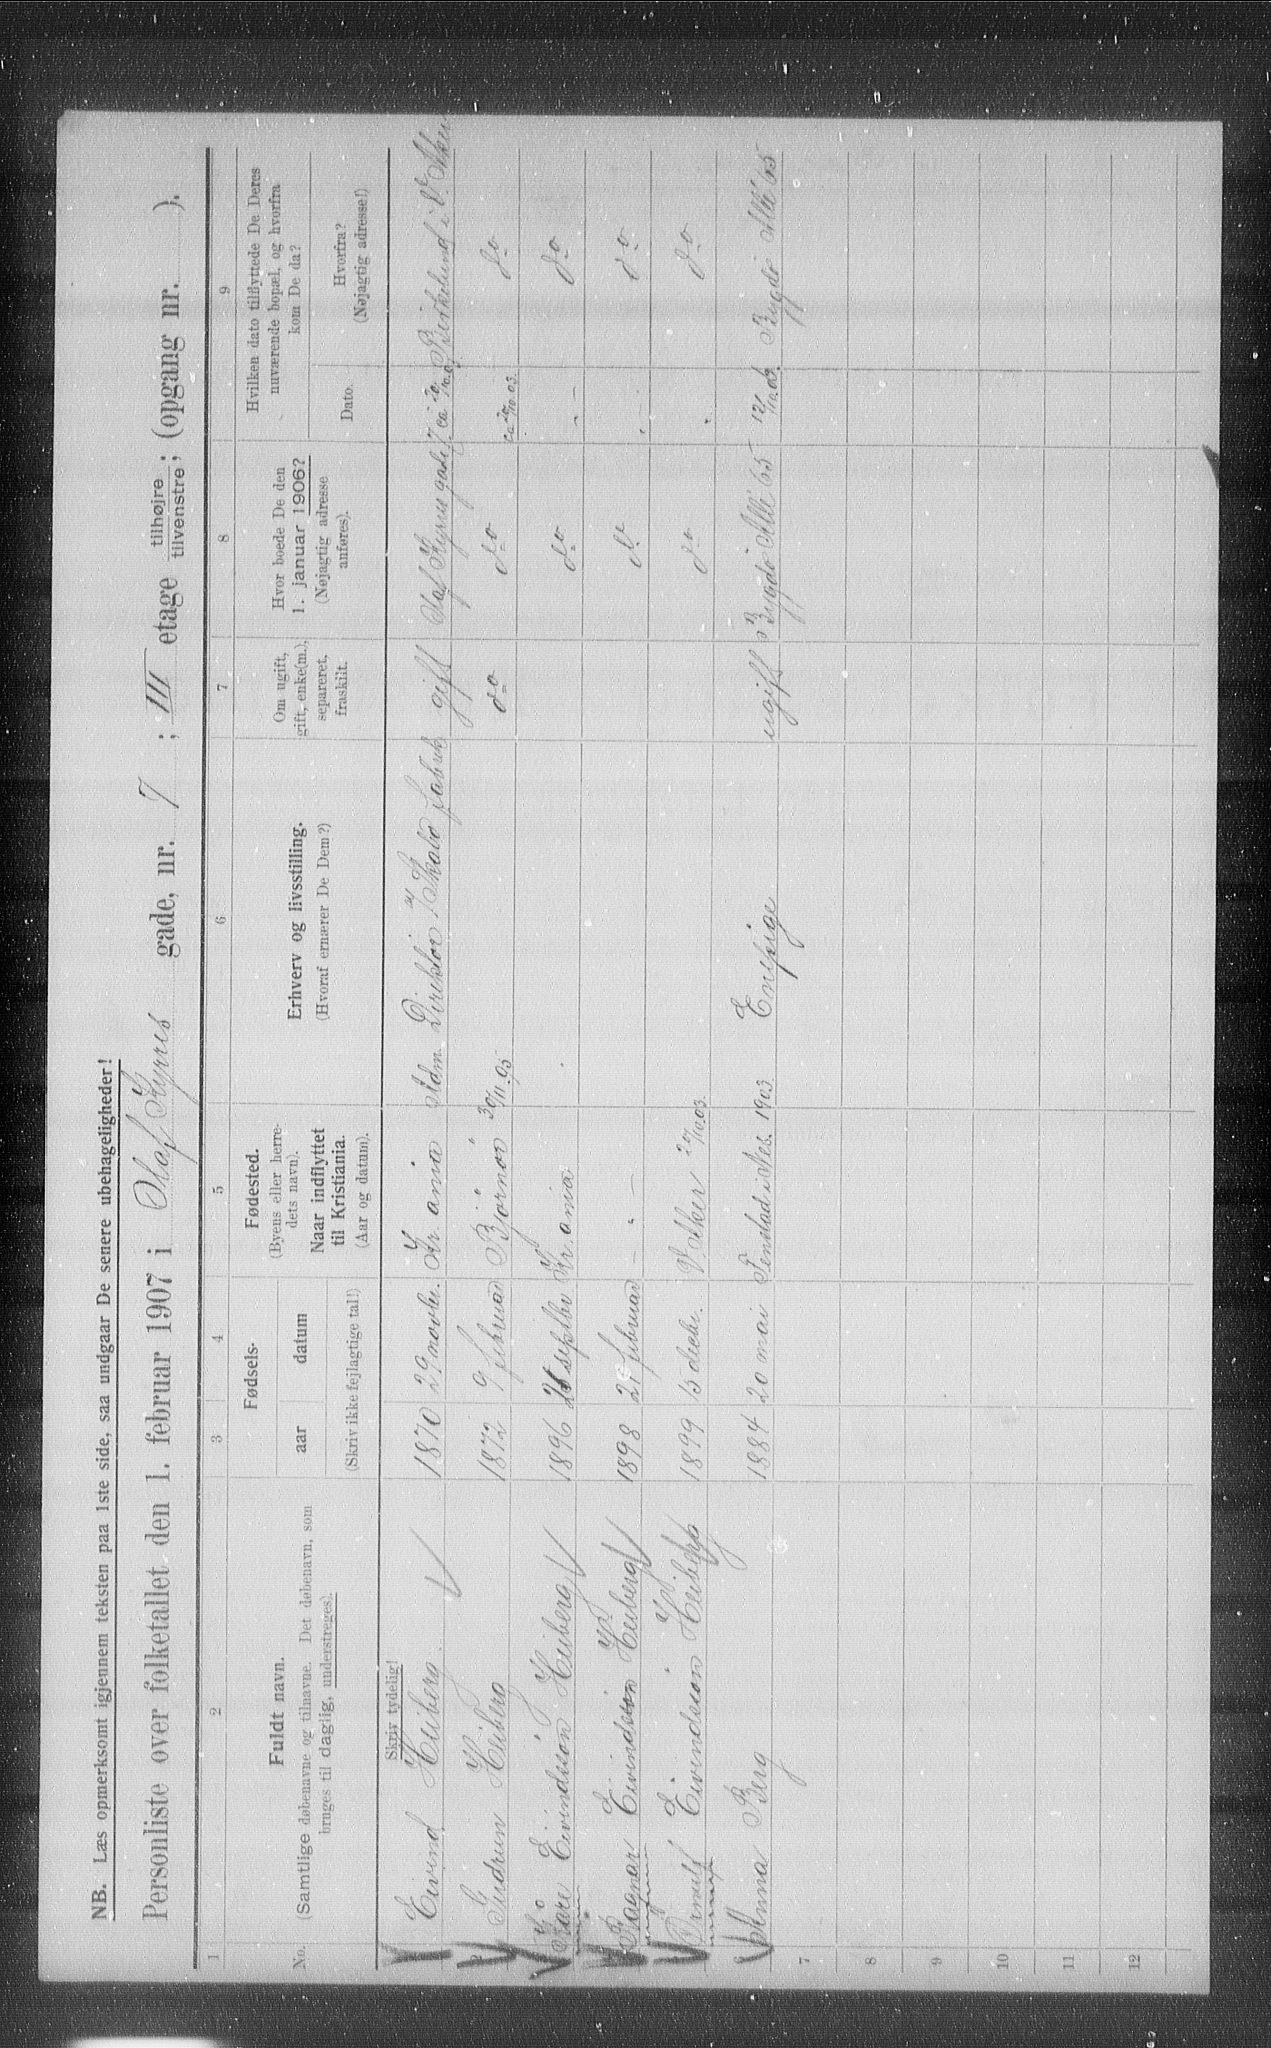 NB. Læs opmerksomt igjennem teksten paa 1ste side, saa undgaar De senere ubehageligheder!
Personliste over folketallet den 1. februar 1907 i Olaf Kyrres gade, nr. 7; III etage tilhøjre / tilvenstre; (opgang nr. ).
1 2 3 4 5 6 7 8 9
No. Fuldt navn. (Samtlige døbenavne og tilnavne. Det døbenavn, som bruges til daglig, understreges).
Fødsels- aar datum (Skriv ikke fejlagtige tal!)
Fødested. (Byens eller herredets navn). Naar indflyttet til Kristiania. (Aar og datum).
Erhverv og livsstilling. (Hvoraf ernærer De Dem?)
Om ugift, gift, enke(m.), separeret, fraskilt.
Hvor boede De den 1. januar 1906? (Nøjagtig adresse anføres).
Hvilken dato tilflyttede De Deres nuværende bopæl, og hvorfra kom De da?
Dato. Hvorfra? (Nøjagtig adresse!)
Skriv tydelig!
Eivind Heiberg 1870 29 novbr. Kr.ania Adm. Direktör Skabo fabrik gift Olaf Kyrres gade 7 ca 20/10.03 Birkelund i V. Aker
2 Gudrun Heiberg 1872 9 februar Björnör 30/11.95 do do ca 20/10.03 do
Kåre Eivindssön Heiberg 1896 septbr Kr.ania do " - do
Ragnar Eivindssön Heiberg 1898 februar - " - do " - do
Ørnulf Eivindssön Heiberg 1899 decbr. V Aker 20/10.03 do " do
Anna Berg 1884 20 mai Nes. 1903 Enepige ugift Bygdö Allé 65 12/10.06. Bygdö Allé 65
7
8
9
10
11
12